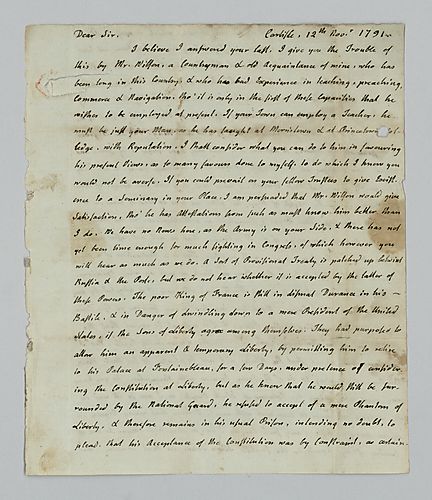 Dear Sir.
Carlisle, 12th Novr 1791
I believe I answered your last. I give you the Trouble of
this by Mr. Wilson, a Countryman & old Acquaintance of mine, who has
been long in this Country, & who has had Experience in teaching, preaching,
Commerce & Navigation. Tho' it is only in the first of these Capacities that he
wishes to be employed at present. If your Town can employ a Teacher, he
must be just your Man, as he has taught at Morristown & at Princetown Col-
ledge, with Reputation. I shall consider what you can do to him in favouring
his present Views, as so many favours done to myself, to do which I know you
would not be averse. If you could prevail on your fellow Trustees to give Exist-
ence to a Seminary in your Place, I am perswaded that Mr. Wilson would give
Satisfaction, Tho' he has Attestations from such as must know him better than
I do. We have no News here, as the Army is on your Side, & there has not
yet been time enough for much fighting in Congress, of which however you
will hear as much as we do. A Sort of Provisional Treaty is patched up betwixt
Russia & the Porte, but we do not hear whether it is accepted by the latter of
these Powers. The poor King of France is still in dismal Durance in his
Bastile, & in Danger of dwindling down to a mere President of the United
States, if the Sons of Liberty agree among themselves. They had purposed to
allow him an apparent & temporary Liberty, by permitting him to retire
to his Palace at Fontainebleau, for a few Days, under pretence of consider-
ing the Constitution at Liberty, but as he knew that he would still be sur-
rounded by the National Guard, he refused to accept of a mere Phantom of
Liberty, & therefore remains in his usual Prison, intending no doubt, to
plead, that his Acceptance of the Constitution was by Constraint, as certain-